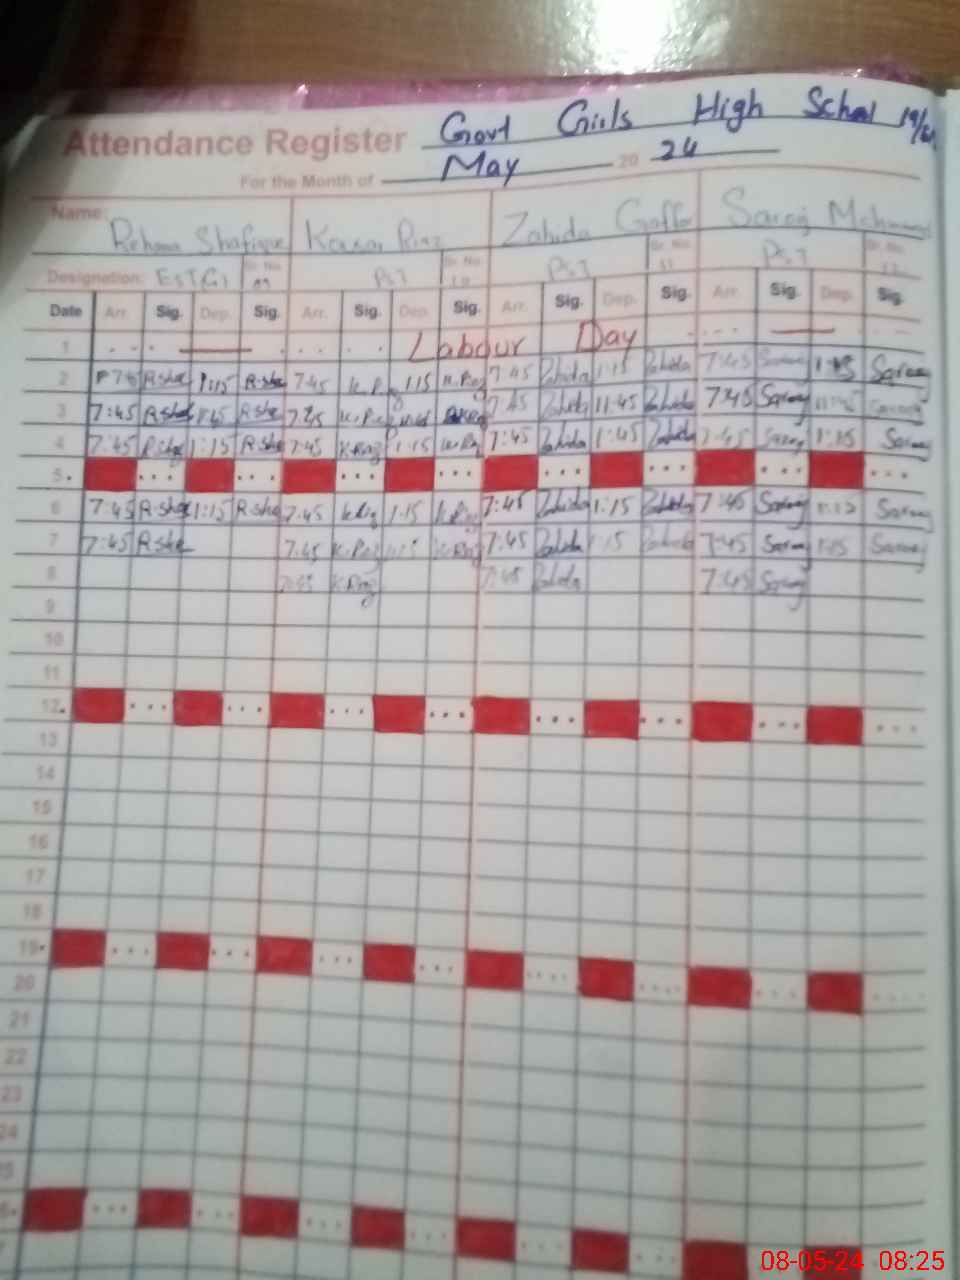 Attendance Register Govt Girls High School
For the Month of May 20 24
Name: Rehana Shafique Kausar Riaz Zahida Gaffor Saraj Mehmood
Designation: EST(G) Sr. No. PST Sr. No. 10 PST Sr. No. 11 PST Sr. No. 12
Date Arr. Sig. Dep. Sig. Arr. Sig. Dep. Sig. Arr. Sig. Dep. Sig. Arr. Sig. Dep. Sig.
1 Labour Day
2 7:45 R.sha 1:15 R.sha 7:45 K.R 1:15 K.Riaz 7:45 Zahida 1:15 Zahida 7:45 Saraj Saraj
3 7:45 R.sha R.sha 7:45 K.Riaz 7:45 Zahida 11:45 Zahida 7:45 Saraj 11:45 Saraj
4 7:45 R.sha 1:15 R.sha 7:45 K.Riaz 1:15 K.Riaz 7:45 Zahida 1:45 Zahida 7:45 Saraj 1:15 Saraj
5
6 7:45 R.sha 1:15 R.sha 7:45 K.Riaz 1:15 K.Riaz 7:45 Zahida 1:15 Zahida 7:45 Saraj 1:15 Saraj
7 7:45 R.sha 7:45 K.Riaz 1:15 K.Riaz 7:45 Zahida 1:15 Zahida 7:45 Saraj 1:15 Saraj
8 7:45 K.Riaz 7:45 Zahida 7:45 Saraj
9
10
11
12
13
14
15
16
17
18
19
20
21
22
23
24
08-05-24 08:25